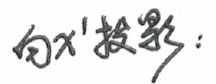 向x'投影: